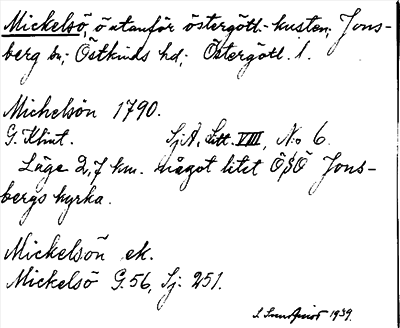 Mickelsö, ö utanför östergötl.-kusten, Jons-
berg sn; Östkinds hd; Östergötl. l.
Michelsön 1790.
G. Klint. SjA, Litt. VIII, No 6.
Läge 2,7 km. något litet ÖSÖ Jons-
bergs kyrka.
Mickelsön ek.
Mickelsö G.56, Sj. 251.
1939.